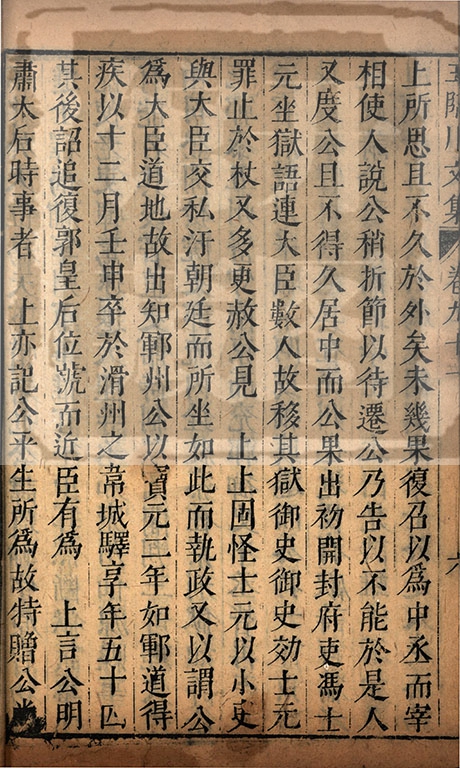 王臨川文集 卷九十一 六
上所思且不久於外矣未幾果復召以爲中丞而宰
相使人說公稍折節以待遷公乃告以不能於是人
又度公且不得久居中而公果出初開封府吏馮士
元坐獄語連大臣數人故移其獄御史御史効士元
罪止於杖又多更赦公見 上上固怪士元以小吏
與大臣交私汙朝廷而所坐如此而執政又以謂公
爲大臣道地故出知鄆州公以寶元二年如鄆道得
疾以十二月壬申卒於滑州之韋城驛享年五十四
其後詔追復郭皇后位號而近臣有爲 上言公明
肅太后時事者 上亦記公平生所爲故特贈公尚